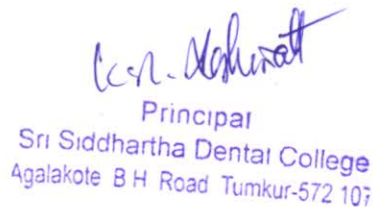 Principal
Sri Siddhartha Dental College
Agalakote B H Road Tumkur-572 107